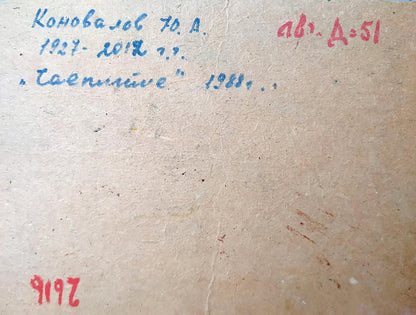 Коновалов Ю. А.
1927-2012 г.г.
„Чаепитие" 1988г..
авт. Д=51